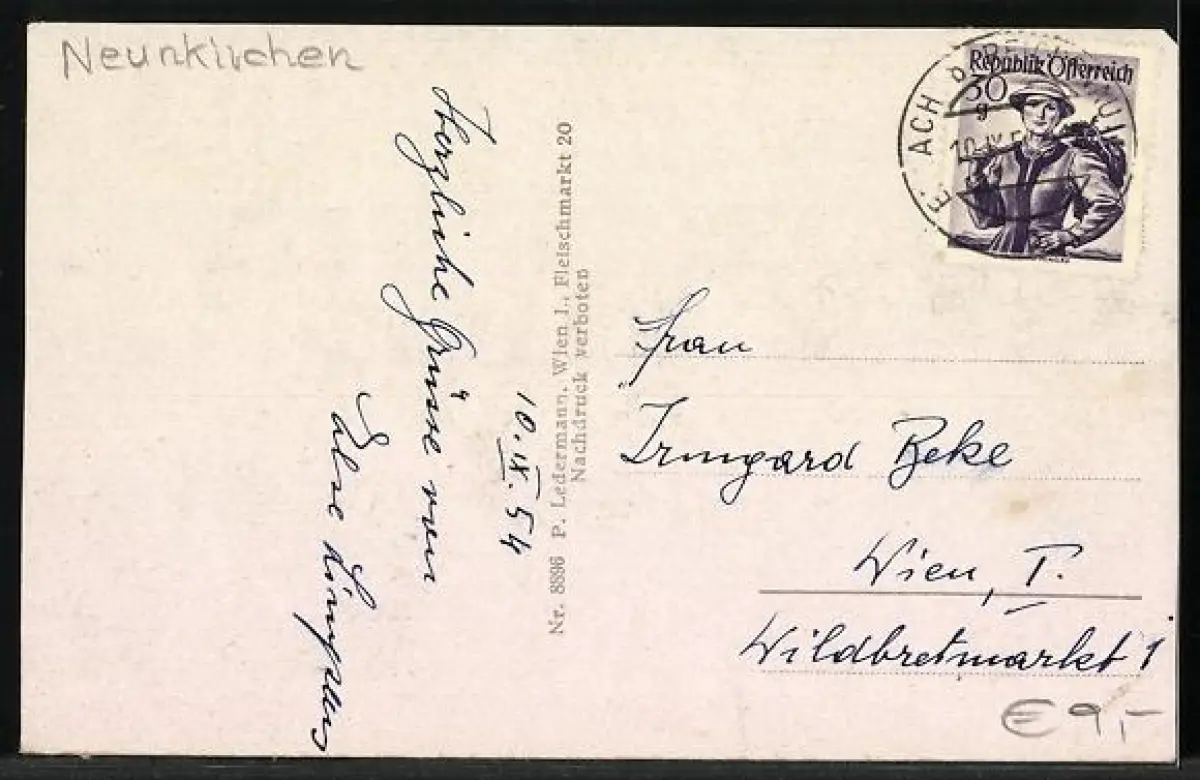 Neunkirchen
Republik Österreich
30
g
ACH
10.IX.54
Herzliche Grüsse von
Else
10.IX.54
Nr. 8896 P. Ledermann, Wien I., Fleischmarkt 20
Nachdruck verboten
Frau
Irmgard Beke
Wien, I.
Wildbretmarkt 1
€ 9,-